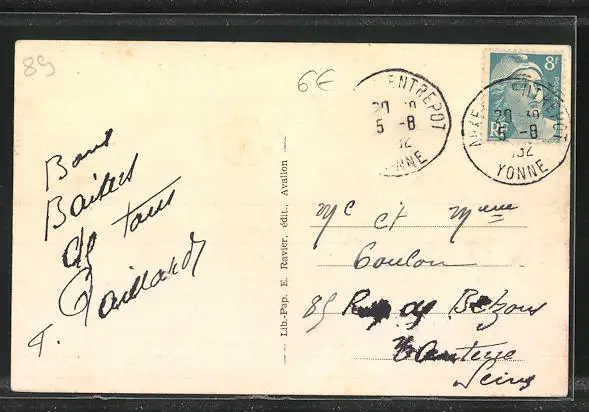 89
6€
ENTREPOT
5 -8
YONNE
8f
RF
5 -8
YONNE
Bons
Baisers
de tous
T. Gaillard
Lib.-Pap. E. Ravier, édit., Avallon
Mr et Mme
Coulon
85 Rue de Bezons
Nanterre
Seine